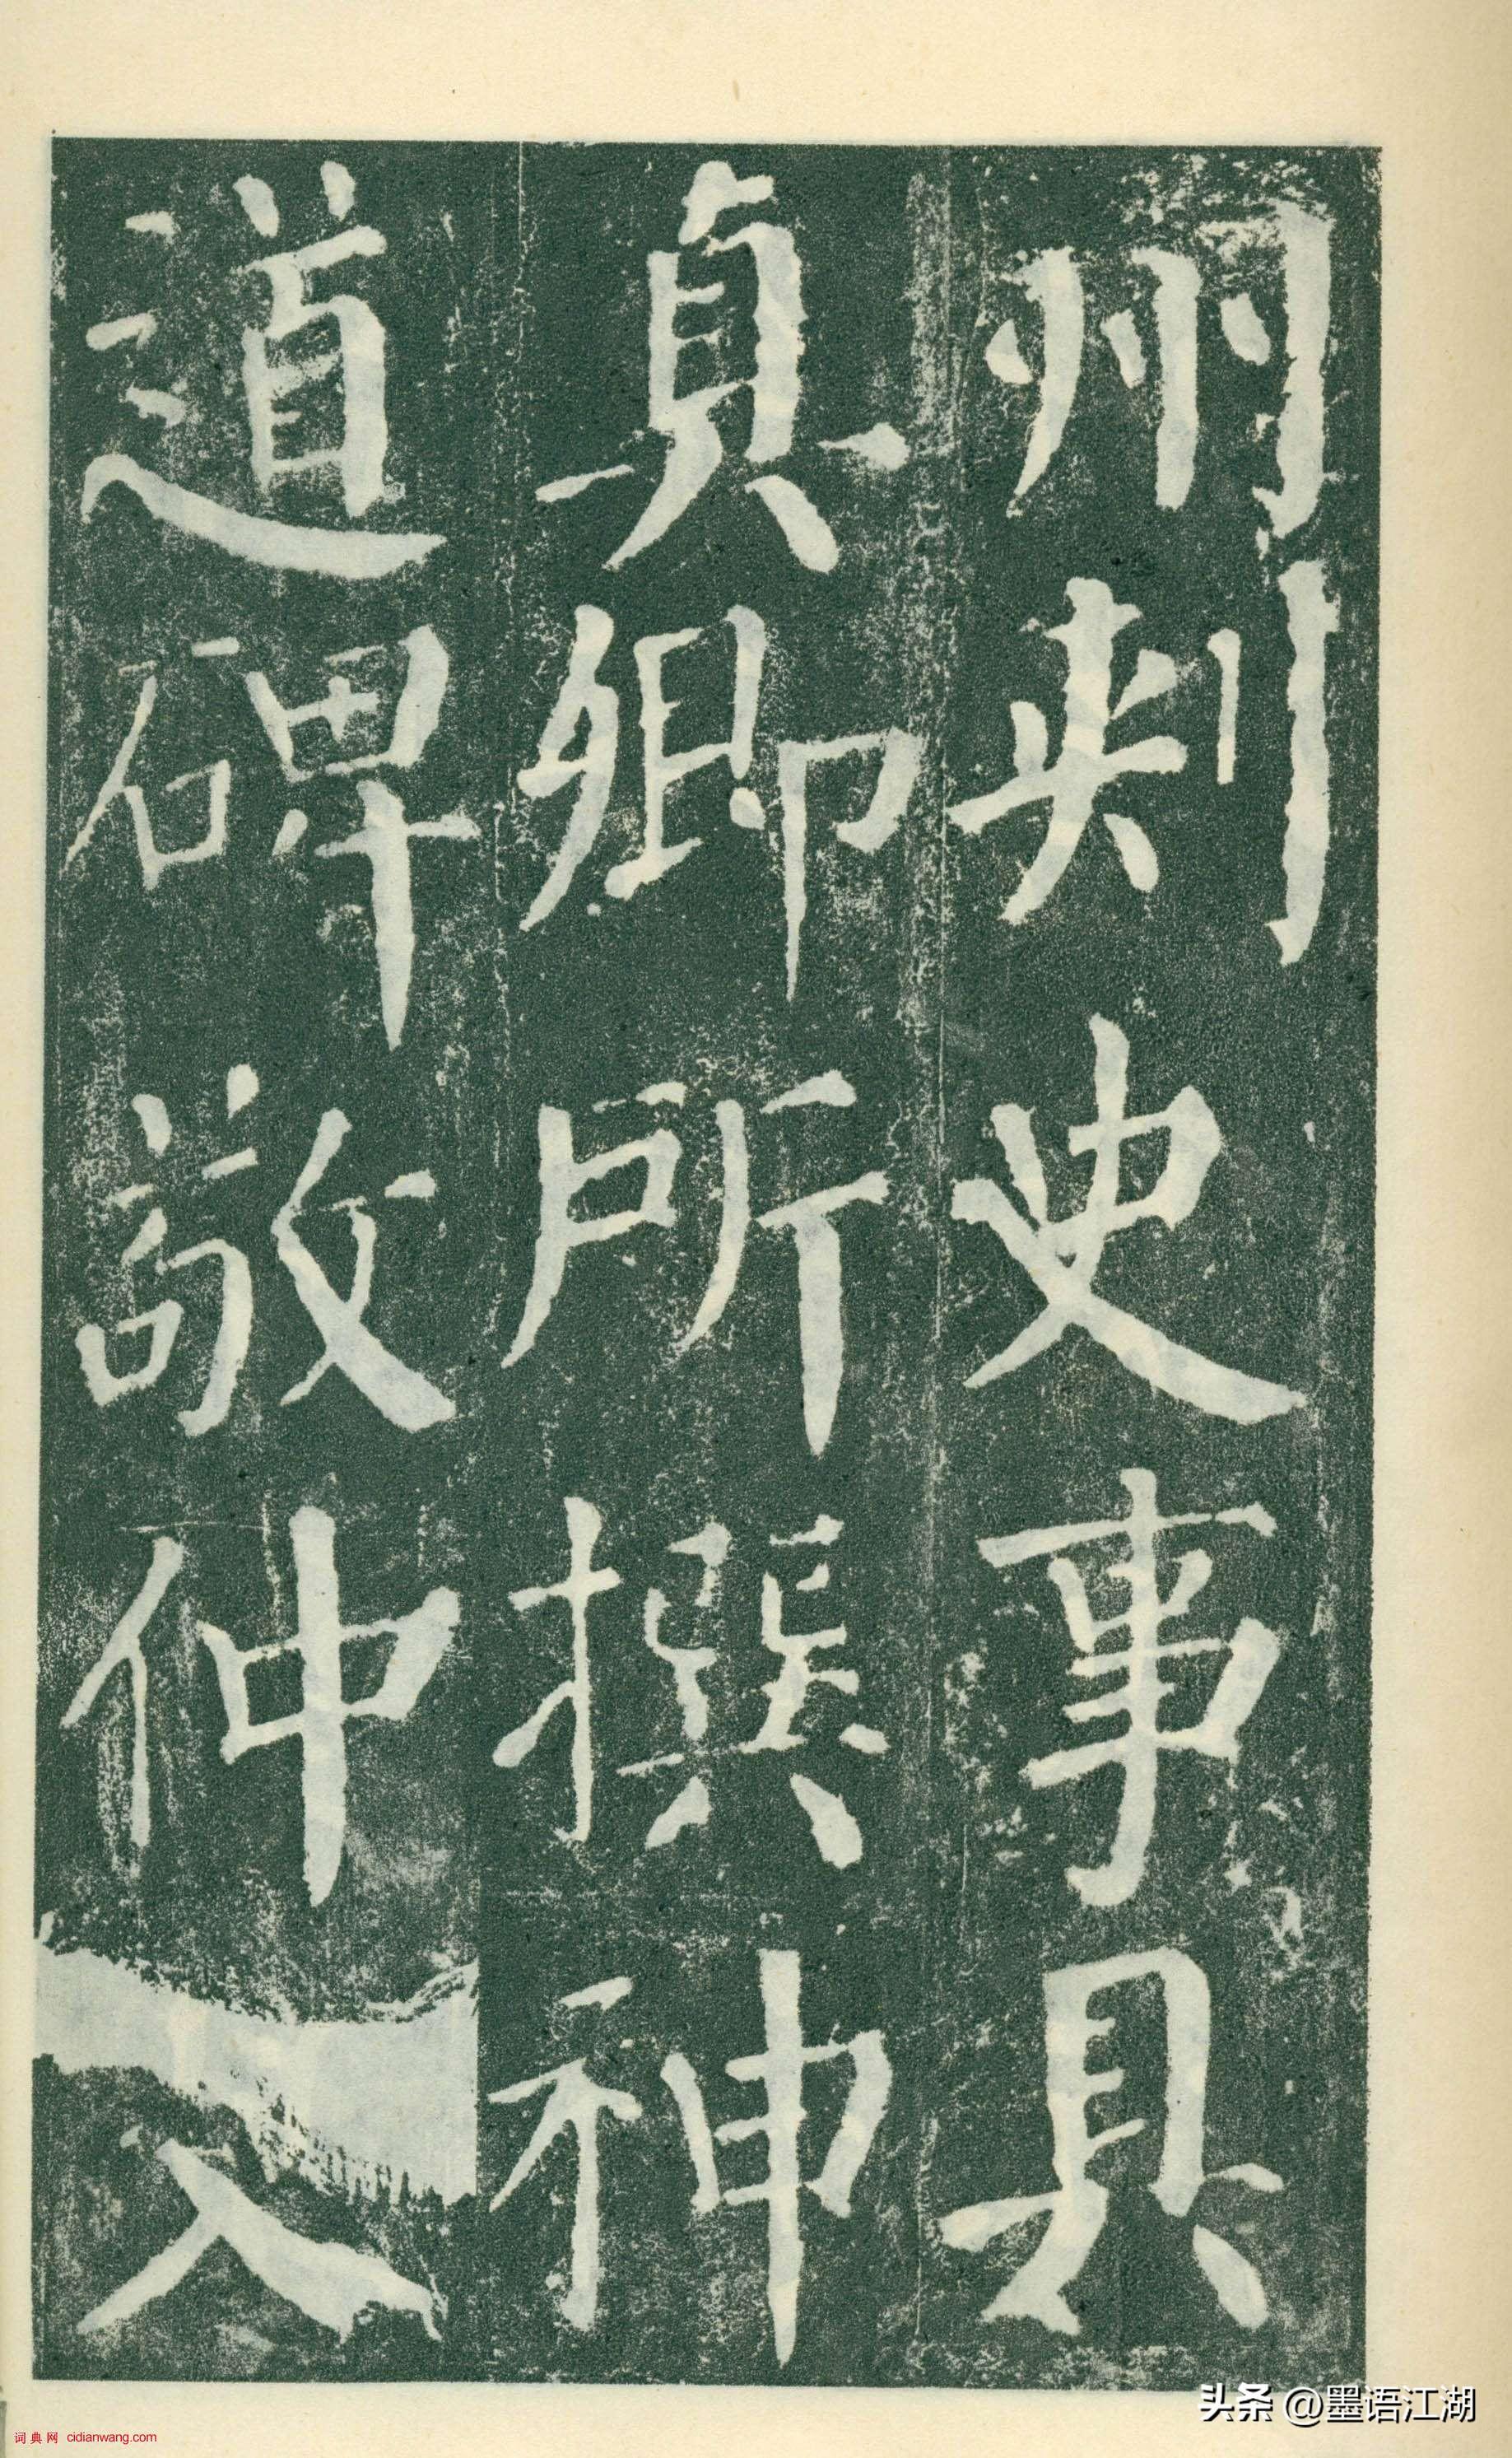 州刺史事具
真卿所撰神
道碑敬仲入
头条 @墨语江湖
词典网 cidianwang.com